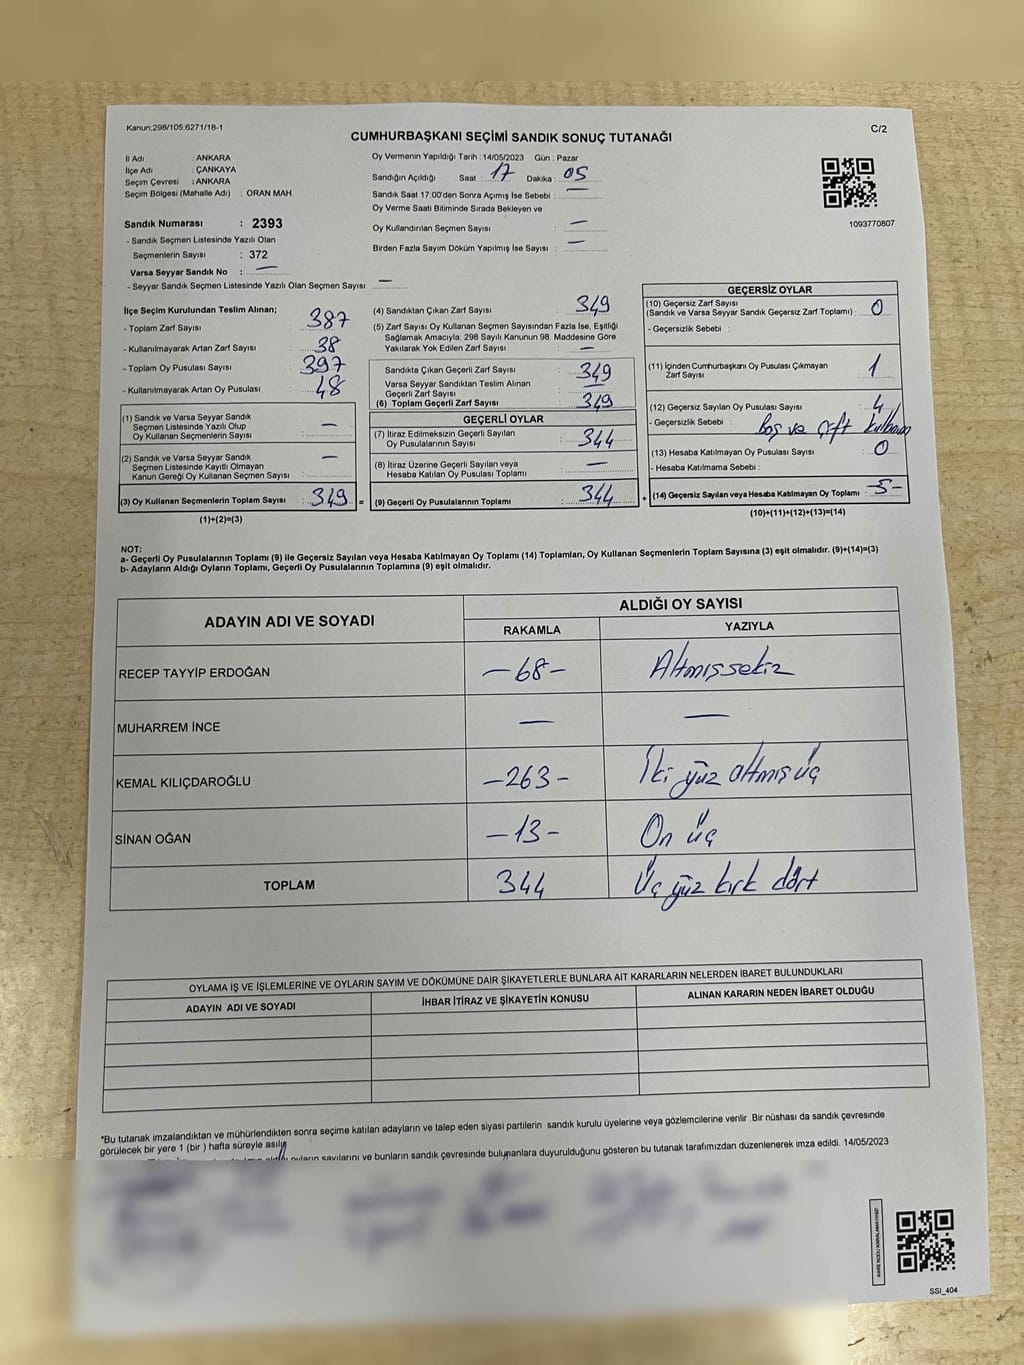 Kanun:298/105;6271/18-1
C/2
CUMHURBAŞKANI SEÇİMİ SANDIK SONUÇ TUTANAĞI
İl Adı : ANKARA
İlçe Adı : ÇANKAYA
Seçim Çevresi : ANKARA
Seçim Bölgesi (Mahalle Adı) : ORAN MAH.
Oy Vermenin Yapıldığı Tarih : 14/05/2023 Gün : Pazar
Sandığın Açıldığı Saat : 17 Dakika : 05
Sandık Saat 17:00'den Sonra Açımış İse Sebebi : —
Oy Verme Saati Bitiminde Sırada Bekleyen ve
Oy Kullandırılan Seçmen Sayısı : —
Birden Fazla Sayım Döküm Yapılmış İse Sayısı : —
1093770807
Sandık Numarası : 2393
- Sandık Seçmen Listesinde Yazılı Olan
Seçmenlerin Sayısı : 372
Varsa Seyyar Sandık No : —
- Seyyar Sandık Seçmen Listesinde Yazılı Olan Seçmen Sayısı: —
İlçe Seçim Kurulundan Teslim Alınan;
- Toplam Zarf Sayısı : 387
- Kullanılmayarak Artan Zarf Sayısı : 38
- Toplam Oy Pusulası Sayısı : 397
- Kullanılmayarak Artan Oy Pusulası : 48
(1) Sandık ve Varsa Seyyar Sandık
Seçmen Listesinde Yazılı Olup
Oy Kullanan Seçmenlerin Sayısı : —
(2) Sandık ve Varsa Seyyar Sandık
Seçmen Listesinde Kayıtlı Olmayan
Kanun Gereği Oy Kullanan Seçmen Sayısı : —
(3) Oy Kullanan Seçmenlerin Toplam Sayısı : 349 =
(1)+(2)=(3)
(4) Sandıktan Çıkan Zarf Sayısı : 349
(5) Zarf Sayısı Oy Kullanan Seçmen Sayısından Fazla İse, Eşitliği
Sağlamak Amacıyla; 298 Sayılı Kanunun 98. Maddesine Göre
Yakılarak Yok Edilen Zarf Sayısı : —
Sandıkta Çıkan Geçerli Zarf Sayısı : 349
Varsa Seyyar Sandıktan Teslim Alınan
Geçerli Zarf Sayısı : —
(6) Toplam Geçerli Zarf Sayısı : 349
GEÇERLİ OYLAR
(7) İtiraz Edilmeksizin Geçerli Sayılan
Oy Pusulalarının Sayısı : 344
(8) İtiraz Üzerine Geçerli Sayılan veya
Hesaba Katılan Oy Pusulası Toplamı : —
(9) Geçerli Oy Pusulalarının Toplamı : 344 +
GEÇERSİZ OYLAR
(10) Geçersiz Zarf Sayısı
(Sandık ve Varsa Seyyar Sandık Geçersiz Zarf Toplamı) : 0
- Geçersizlik Sebebi :
(11) İçinden Cumhurbaşkanı Oy Pusulası Çıkmayan
Zarf Sayısı : 1
(12) Geçersiz Sayılan Oy Pusulası Sayısı : 4
- Geçersizlik Sebebi : boş ve çift
(13) Hesaba Katılmayan Oy Pusulası Sayısı : 0
- Hesaba Katılmama Sebebi :
(14) Geçersiz Sayılan veya Hesaba Katılmayan Oy Toplamı : -5-
(10)+(11)+(12)+(13)=(14)
NOT:
a- Geçerli Oy Pusulalarının Toplamı (9) ile Geçersiz Sayılan veya Hesaba Katılmayan Oy Toplamı (14) Toplamları, Oy Kullanan Seçmenlerin Toplam Sayısına (3) eşit olmalıdır. (9)+(14)=(3)
b- Adayların Aldığı Oyların Toplamı, Geçerli Oy Pusulalarının Toplamına (9) eşit olmalıdır.
ADAYIN ADI VE SOYADI
ALDIĞI OY SAYISI
RAKAMLA YAZIYLA
RECEP TAYYİP ERDOĞAN —68— Altmışsekiz
MUHARREM İNCE — —
KEMAL KILIÇDAROĞLU —263— İki yüz altmış üç
SİNAN OĞAN —13— On üç
TOPLAM 344 Üç yüz kırk dört
OYLAMA İŞ VE İŞLEMLERİNE VE OYLARIN SAYIM VE DÖKÜMÜNE DAİR ŞİKAYETLERLE BUNLARA AİT KARARLARIN NELERDEN İBARET BULUNDUKLARI
ADAYIN ADI VE SOYADI İHBAR İTİRAZ VE ŞİKAYETİN KONUSU ALINAN KARARIN NEDEN İBARET OLDUĞU
*Bu tutanak imzalandıktan ve mühürlendikten sonra seçime katılan adayların ve talep eden siyasi partilerin sandık kurulu üyelerine veya gözlemcilerine verilir. Bir nüshası da sandık çevresinde
görülecek bir yere 1 (bir) hafta süreyle asılır.
oyların sayılarını ve bunların sandık çevresinde bulunanlara duyurulduğunu gösteren bu tutanak tarafımızdan düzenlenerek imza edildi. 14/05/2023
SSI_404